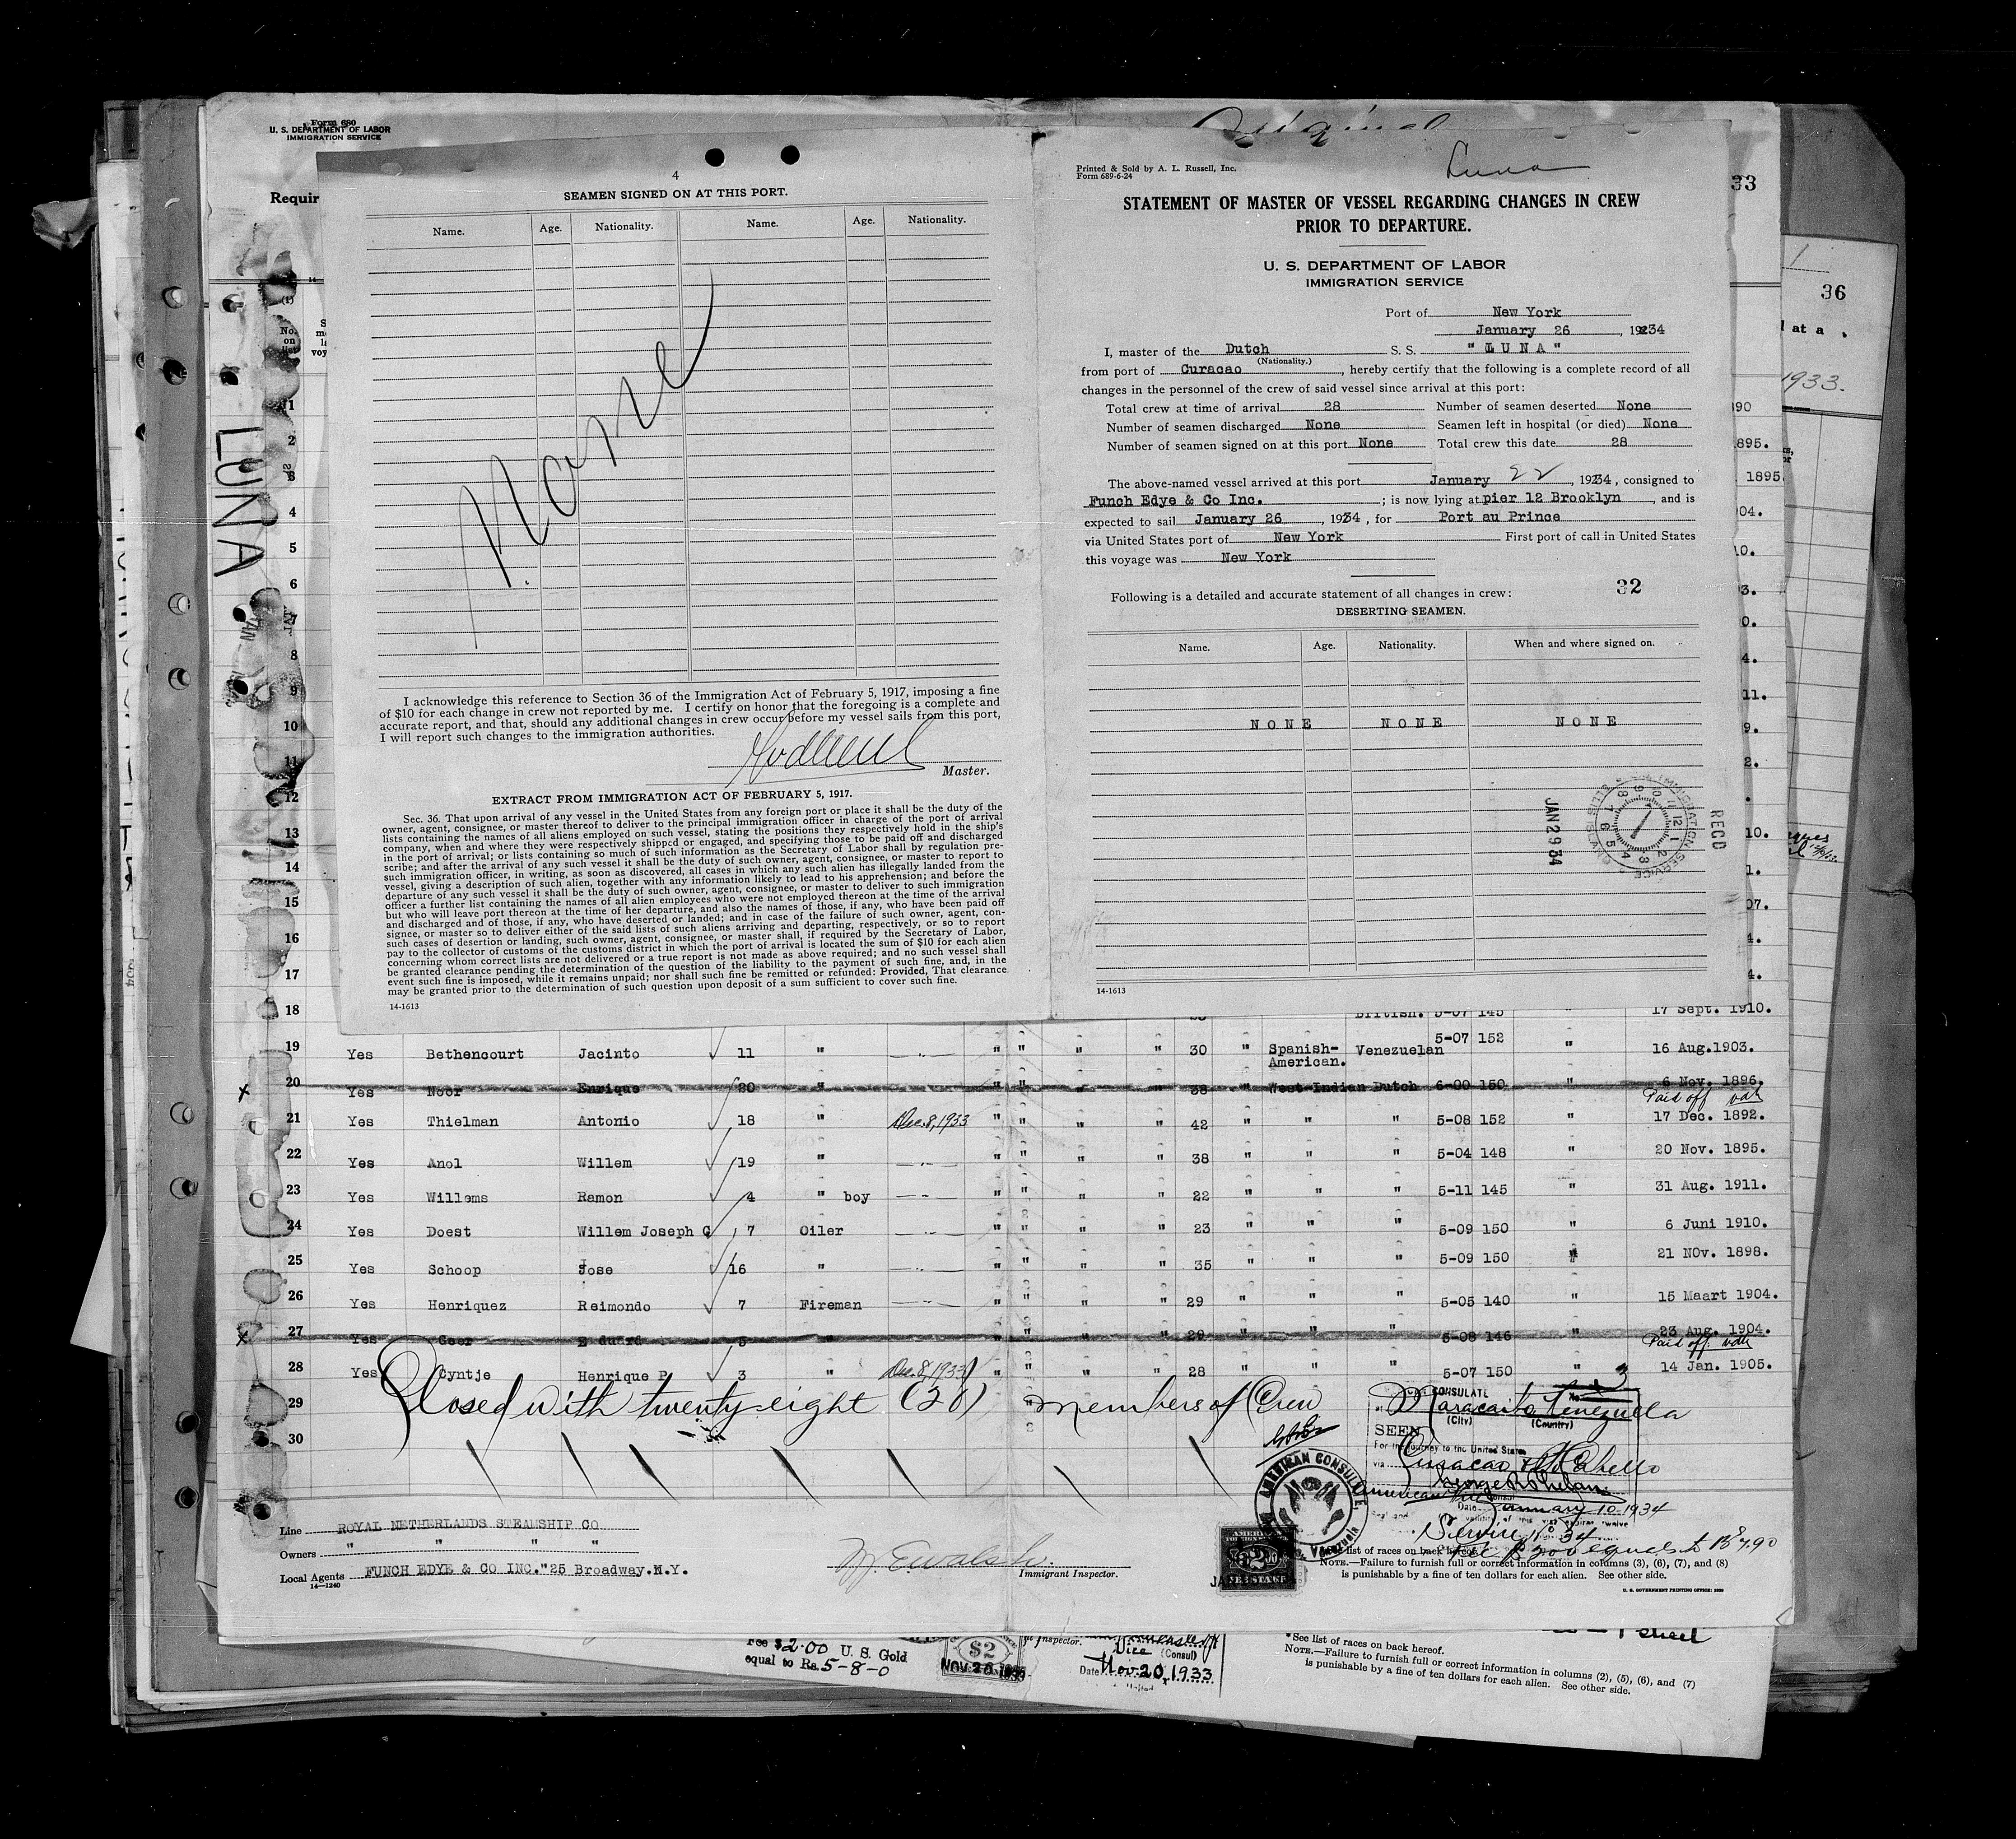 Form 680
U. S. DEPARTMENT OF LABOR
IMMIGRATION SERVICE
Original
Requir
33
LUNA
4
SEAMEN SIGNED ON AT THIS PORT.
Name. Age. Nationality. Name. Age. Nationality.
None
I acknowledge this reference to Section 36 of the Immigration Act of February 5, 1917, imposing a fine
of $10 for each change in crew not reported by me. I certify on honor that the foregoing is a complete and
accurate report, and that, should any additional changes in crew occur before my vessel sails from this port,
I will report such changes to the immigration authorities.
Master.
EXTRACT FROM IMMIGRATION ACT OF FEBRUARY 5, 1917.
Sec. 36. That upon arrival of any vessel in the United States from any foreign port or place it shall be the duty of the
owner, agent, consignee, or master thereof to deliver to the principal immigration officer in charge of the port of arrival
lists containing the names of all aliens employed on such vessel, stating the positions they respectively hold in the ship's
company, when and where they were respectively shipped or engaged, and specifying those to be paid off and discharged
in the port of arrival; or lists containing so much of such information as the Secretary of Labor shall by regulation pre-
scribe; and after the arrival of any such vessel it shall be the duty of such owner, agent, consignee, or master to report to
such immigration officer, in writing, as soon as discovered, all cases in which any such alien has illegally landed from the
vessel, giving a description of such alien, together with any information likely to lead to his apprehension; and before the
departure of any such vessel it shall be the duty of such owner, agent, consignee, or master to deliver to such immigration
officer a further list containing the names of all alien employees who were not employed thereon at the time of the arrival
but who will leave port thereon at the time of her departure, and also the names of those, if any, who have been paid off
and discharged and of those, if any, who have deserted or landed; and in case of the failure of such owner, agent, con-
signee, or master so to deliver either of the said lists of such aliens arriving and departing, respectively, or so to report
such cases of desertion or landing, such owner, agent, consignee, or master shall, if required by the Secretary of Labor,
pay to the collector of customs of the customs district in which the port of arrival is located the sum of $10 for each alien
concerning whom correct lists are not delivered or a true report is not made as above required; and no such vessel shall
be granted clearance pending the determination of the question of the liability to the payment of such fine, and, in the
event such fine is imposed, while it remains unpaid; nor shall such fine be remitted or refunded: Provided, That clearance
may be granted prior to the determination of such question upon deposit of a sum sufficient to cover such fine.
14-1613
Printed & Sold by A. L. Russell, Inc.
Form 689-6-24
Luna
STATEMENT OF MASTER OF VESSEL REGARDING CHANGES IN CREW
PRIOR TO DEPARTURE.
U. S. DEPARTMENT OF LABOR
IMMIGRATION SERVICE
Port of New York
January 26, 1934
I, master of the Dutch S. S. "LUNA"
(Nationality.)
from port of Curacao, hereby certify that the following is a complete record of all
changes in the personnel of the crew of said vessel since arrival at this port:
Total crew at time of arrival 28 Number of seamen deserted None
Number of seamen discharged None Seamen left in hospital (or died) None
Number of seamen signed on at this port None Total crew this date 28
The above-named vessel arrived at this port January 22, 1934, consigned to
Funch Edye & Co Inc.; is now lying at pier 12 Brooklyn, and is
expected to sail January 26, 1934, for Port au Prince
via United States port of New York First port of call in United States
this voyage was New York
32
Following is a detailed and accurate statement of all changes in crew:
DESERTING SEAMEN.
Name. Age. Nationality. When and where signed on.
NONE NONE NONE
JAN 29 34
RECD
14-1613
36
1933.
18 British. 5-07 145 " 17 Sept. 1910.
19 Yes Bethencourt Jacinto 11 " " " " " 30 " Spanish-American. Venezuelan 5-07 152 " 16 Aug.1903.
20 Yes Noor Enrique 20 " " " " " 38 " West Indian Dutch 6-00 150 " 6 Nov. 1896.
Paid off
21 Yes Thielman Antonio 18 " Dec. 8, 1933 " " " " 42 " " " 5-08 152 " 17 Dec. 1892.
22 Yes Anol Willem 19 " " " " " 38 " " " 5-04 148 " 20 Nov. 1895.
23 Yes Willems Ramon 4 " boy " " " " 22 " " " 5-11 145 " 31 Aug. 1911.
24 Yes Doest Willem Joseph G 7 Oiler " " " " 23 " " " 5-09 150 " 6 Juni 1910.
25 Yes Schoop Jose 16 " " " " " 35 " " " 5-09 150 " 21 NOv. 1898.
26 Yes Henriquez Reimondo 7 Fireman " " " " 29 " " " 5-05 140 " 15 Maart 1904.
27 Yes Geer Eduard 5 " " " " " 29 " " " 5-08 146 " 23 Aug. 1904.
Paid off
28 Yes Cyntje Henrique P 3 " Dec. 8, 1933 " " " " 28 " " " 5-07 150 " 14 Jan. 1905.
29 Closed with twenty eight (28) members of Crew
30
CONSULATE
Maracaibo Venezuela
(City) (Country)
SEEN
For the journey to the United States
via Curacao & Pto Cabello
George R Phelan
American Vice Consul
Date January 10 1934
AMERICAN CONSULATE
Service No 34
Line ROYAL NETHERLANDS STEAMSHIP CO
Owners " " " "
Local Agents FUNCH EDYE & CO INC." 25 Broadway.N.Y.
14-1240
Immigrant Inspector.
list of races on back hereof.
NOTE.—Failure to furnish full or correct information in columns (3), (6), (7), and (8)
is punishable by a fine of ten dollars for each alien. See other side.
U. S. GOVERNMENT PRINTING OFFICE: 1930
Fee $2.00 U. S. Gold
equal to Rs. 5-8-0
$2
NOV 20 1933
Inspector.
Vice (Consul)
Date Nov. 20, 1933
*See list of races on back hereof.
NOTE.—Failure to furnish full or correct information in columns (2), (5), (6), and (7)
is punishable by a fine of ten dollars for each alien. See other side.